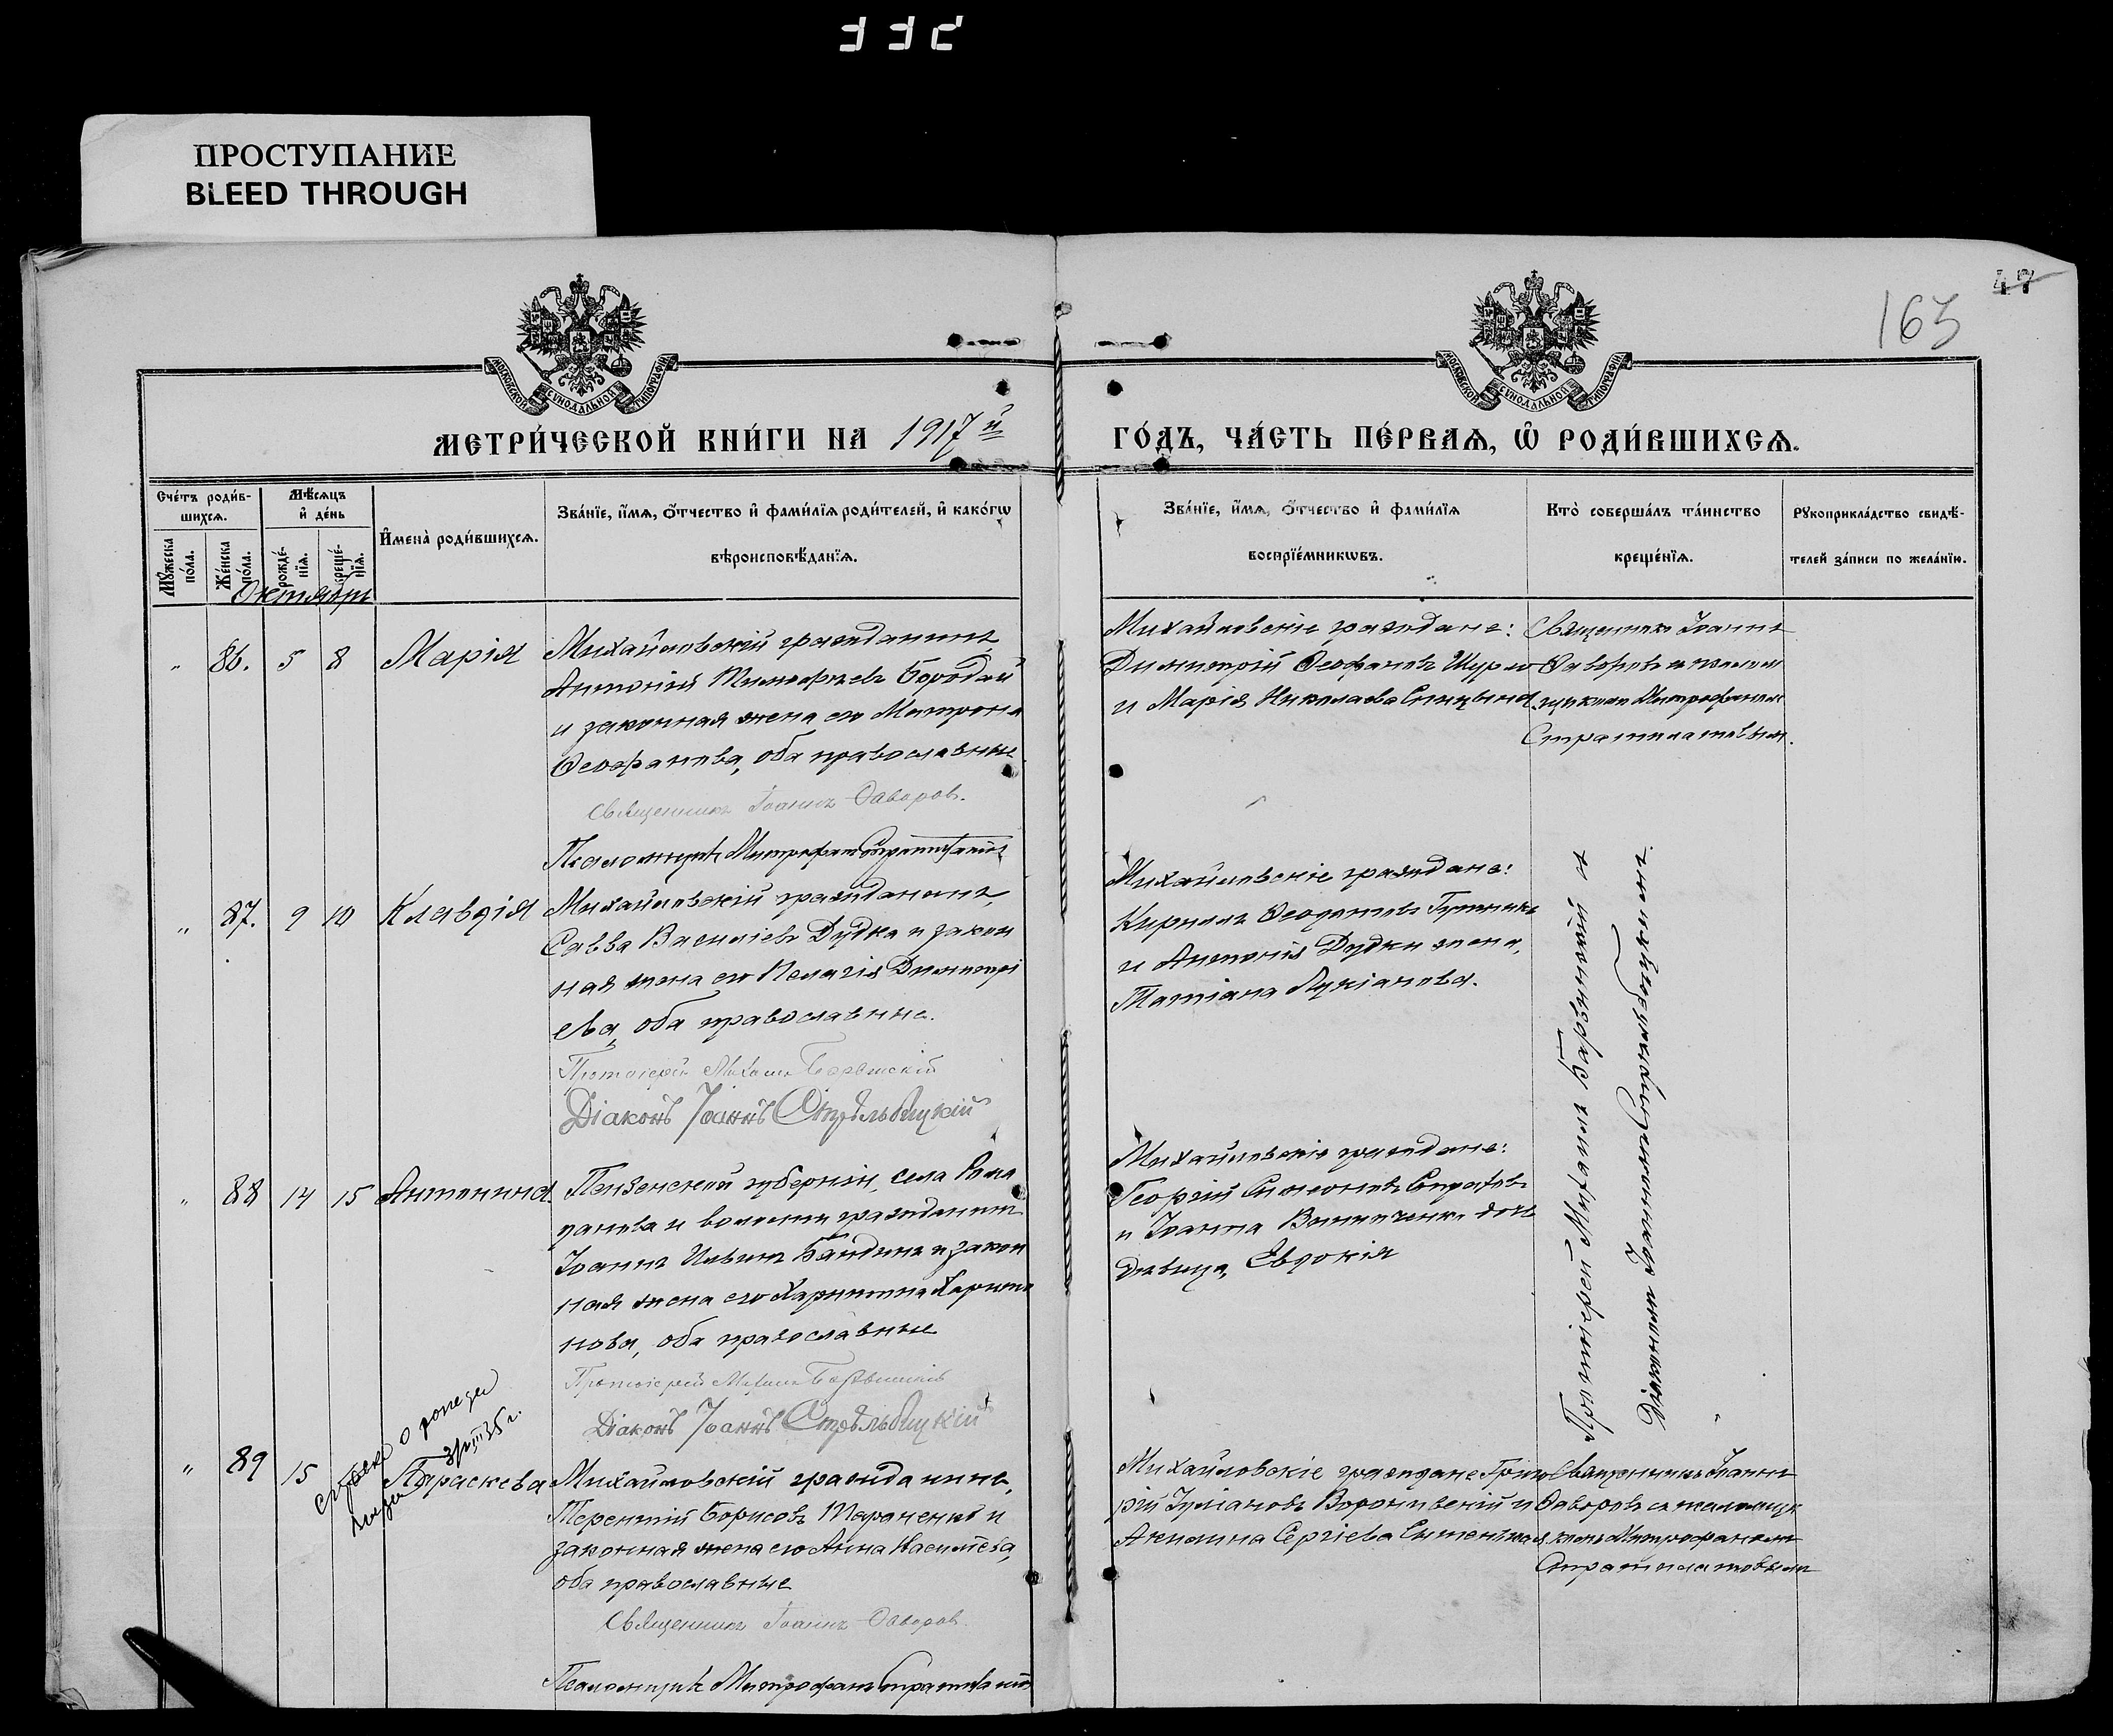 332
ПРОСТУПАНИЕ
BLEED THROUGH
47
163
МОСКОВСКОЙ СѴНОДАЛЬНОЙ ТИПОГРАФІИ
МОСКОВСКОЙ СѴНОДАЛЬНОЙ ТИПОГРАФІИ
МЕТРИ́ЧЕСКОЙ КНИ́ГИ НА 1917й
ГО́ДЪ, ЧА́СТЬ ПЕ́РВАѦ, Ѡ҆ РОДИ́ВШИХСѦ.
Сче́тъ роди́в-
шихсѧ.
Мꙋ́жеска по́ла.
Же́нска по́ла.
Мѣ́сѧцъ
и҆ де́нь
рожде́-нїѧ.
креще́-нїѧ.
И҆мена̀ роди́вшихсѧ.
Зва́нїе, и҆́мѧ, ѻ҆́тчество и҆ фами́лїѧ роди́телей, и҆ како́гѡ
вѣроисповѣ́данїѧ.
Зва́нїе, и҆́мѧ, ѻ҆́тчество и҆ фами́лїѧ
воспрїе́мникѡвъ.
Кто̀ соверша́лъ та́инство
креще́нїѧ.
Рꙋкоприкла́дство свидѣ́-
телей за́писи по жела́нїю.
Октябрь
" 86. 5 8 Марія
Михайловскій гражданинъ
Антоній Тимофеевъ Бородай
и законная жена его Матрона
Ѳеофанова, оба православные
Священникъ Іоаннъ Ѳаворовъ.
Псаломщикъ Митрофанъ
Михайловскіе граждане:
Димитрій Ѳеофановъ Шурло
и Марія Николаева Спицына.
Священникъ Іоаннъ
Ѳаворовъ с псалом
щикомъ Митрофаномъ
Стратилатовымъ.
" 87. 9 10 Клавдія
Михайловскій гражданинъ
Савва Василіевъ Дудка и закон
ная жена его Пелагія Димитрі
ева, оба православные.
Протоіерей Михаилъ
Діаконъ Іоаннъ Стрѣльбицкій
Михайловскіе граждане:
Кириллъ
и Антонія Дудки жена,
Татіана Лукіанова.
Протоіерей Михаилъ и
Діакономъ Іоанномъ Стрѣльбицкимъ.
" 88 14 15 Антонина.
Пензенской губерніи, села Рома
данова и волости гражданинъ
Іоаннъ Ильинъ Бандинъ и закон
ная жена его Харитина Харито
нова, оба православные
Протоіерей Михаилъ
Діаконъ Іоаннъ Стрѣльбицкій
Михайловскіе граждане:
Георгій Симеоновъ
и Іоанна Винниченки дочь
дѣвица, Евдокія
" 89 15 Параскева
Михайловскій гражданинъ,
Терентій Борисовъ Тараненко и
законная жена его Анна Василіева,
оба православные
Священникъ Іоаннъ Ѳаворовъ.
Псаломщикъ Митрофанъ
Михайловскіе граждане Григо
рій Іуліановъ и
Акилина Сергіева
Священникъ Іоаннъ
Ѳаворовъ съ псаломщи
комъ Митрофаномъ
Стратилатовымъ